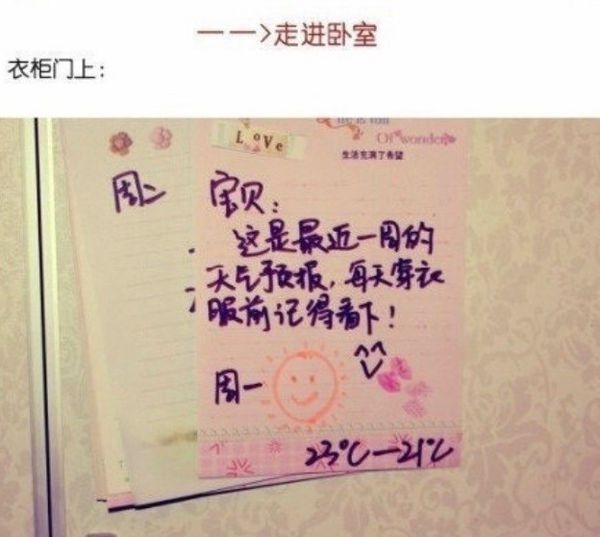 ——>走进卧室
衣柜门上：
LoVe
Of wonder
生活充满了希望
周二
宝贝：
这是最近一周的
天气预报，每天穿衣
服前记得看下！
周一
23℃—21℃